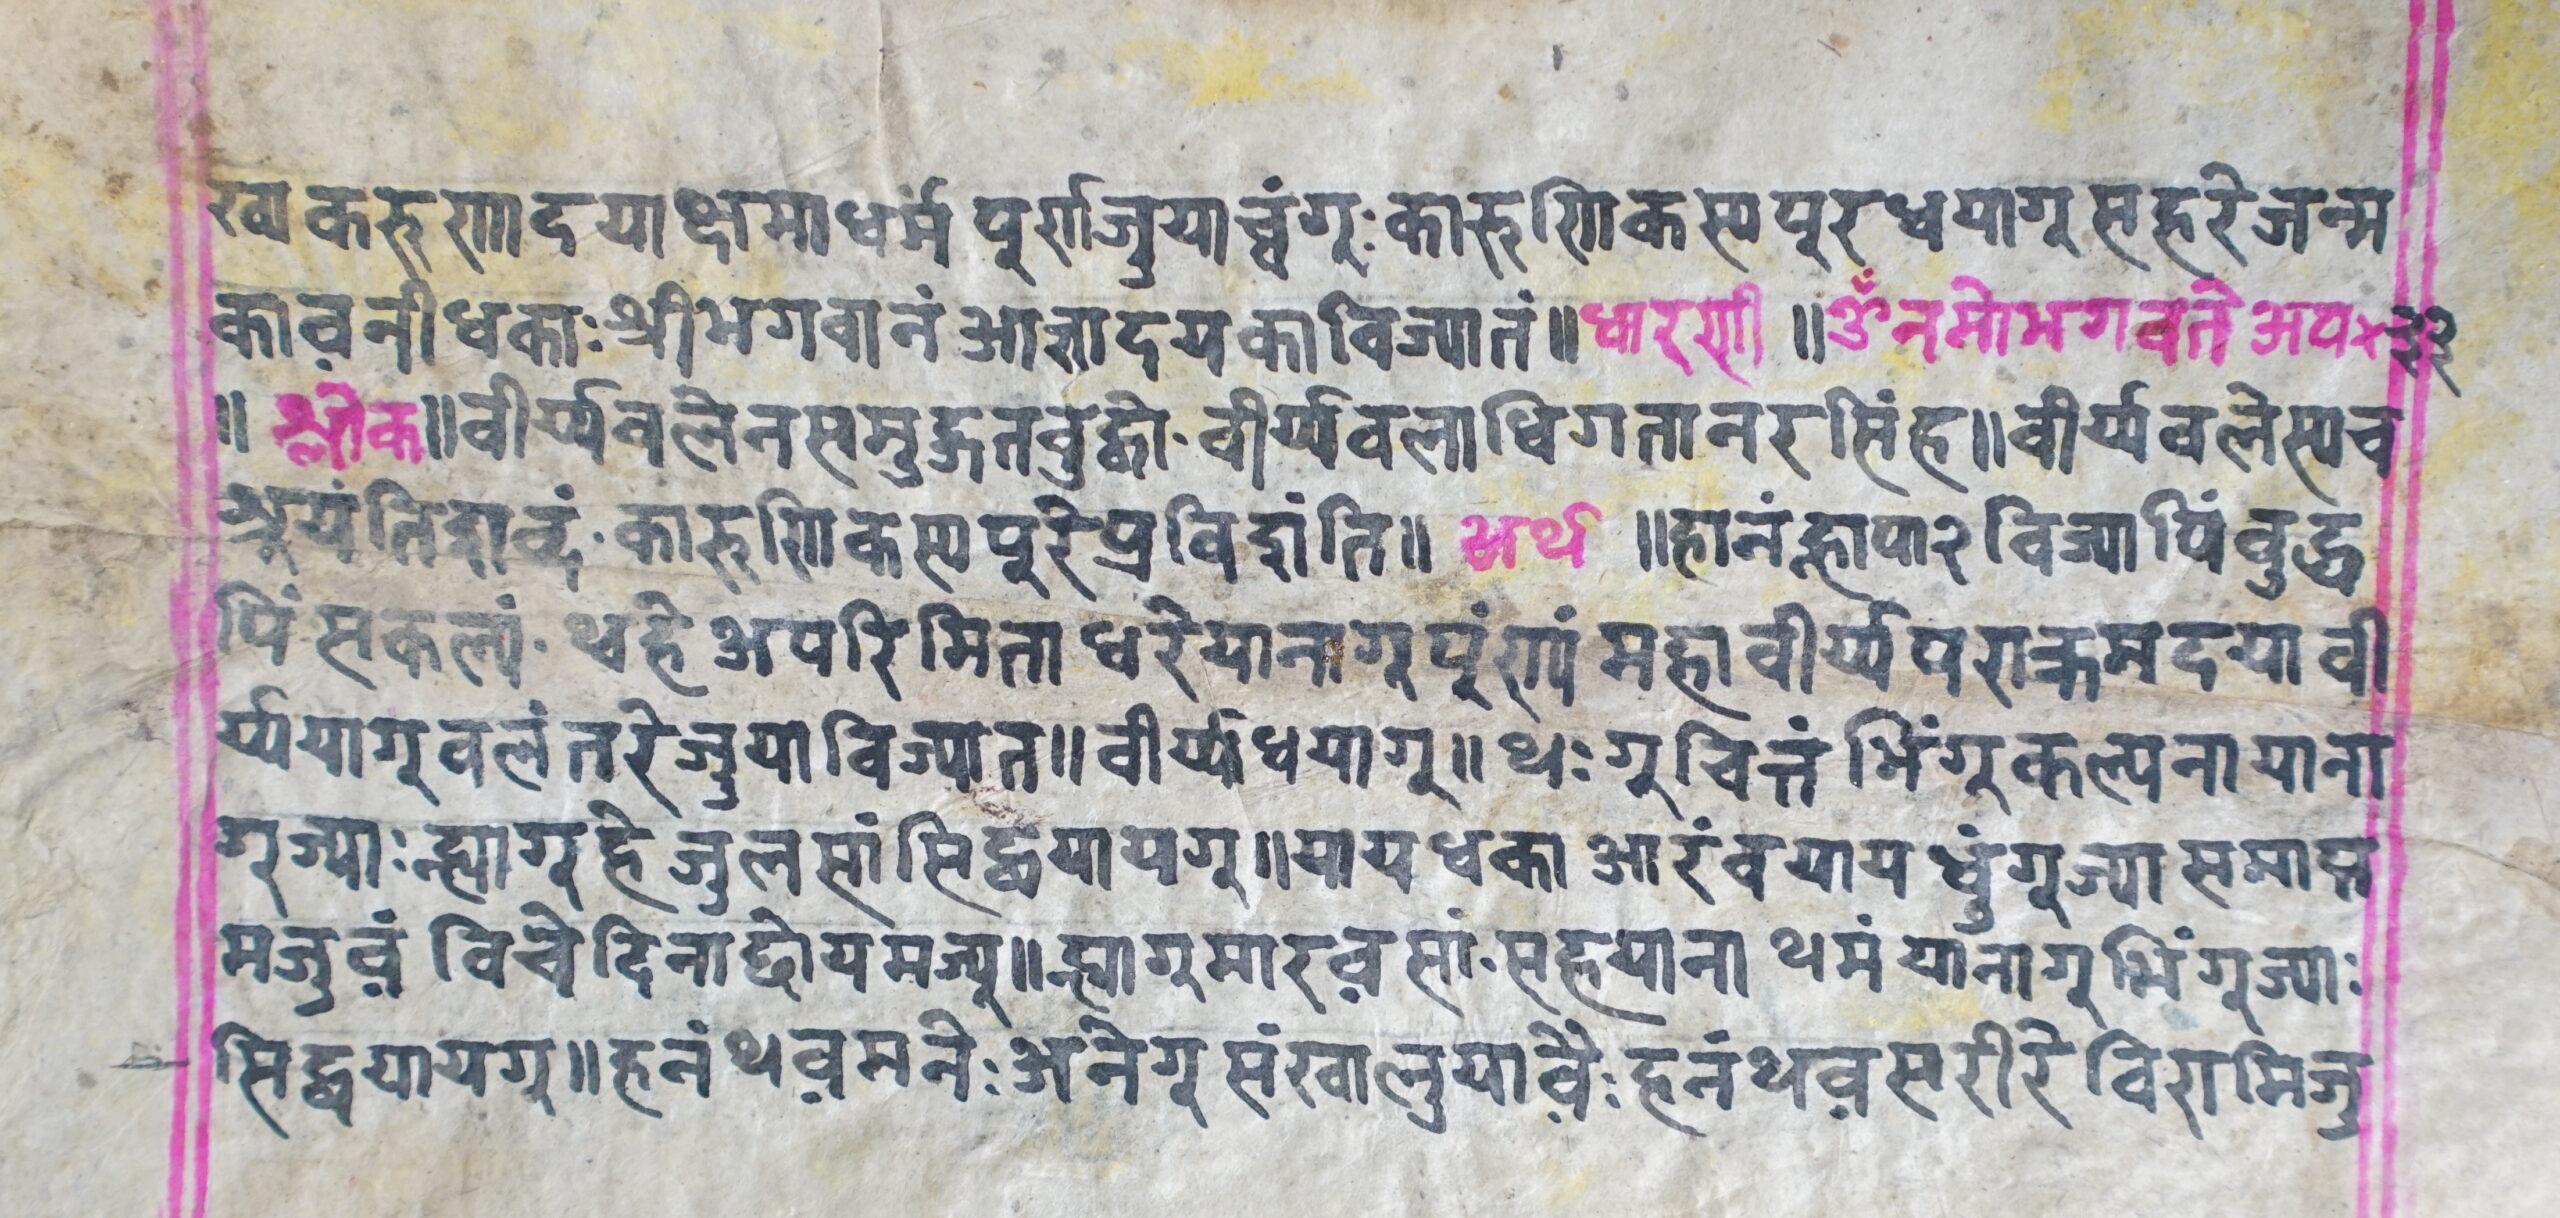 रवा करुणादयाक्षमाधर्म पूर्णजुयाच्वंगूः कारुणिकस्य पूरधयागू सहरे जन्म
काव़नी धकाः श्रीभगवानं आज्ञादयका विज्यातं॥ धारणी ॥ ॐ नमो भगवते अप× ३२
॥ श्लोक॥ वीर्य्यवलेन समुद्गतवुद्धो· वीर्य्यवलाधिगता नरसिंह॥ वीर्यवलेस्य च
श्रूयंति शव्दं· कारुणिकस्य पुरे प्रविशंति॥ अर्थ ॥ हानं ह्लापा२ विज्यापिं वुद्ध
पिं सकल्यं· थ्व हे अपरिमिता धरेयानागू पूंण्यं महावीर्य्य पराक्रम दया वी
र्य्ययागू वलं तरे जुया विज्यात॥ वीर्य्य धयागू॥ थःगू चित्तं भिंगु कल्पना याना
गू ज्याः ह्यागू हे जुलसां सिद्धयायगू॥ याय धका आरंव याय धुंगू ज्या समाप्त
मजुव़ं विचे दिनाद्धोय मज्यू॥ ह्यागु मारव़सां· सहयाना थमं यानागू भिंगू ज्याः
सिद्धयायगू॥ हनं थव़ मनेः अनेगू संखालुयाव़ेः हनं थव़ सरीरे विरामि जु